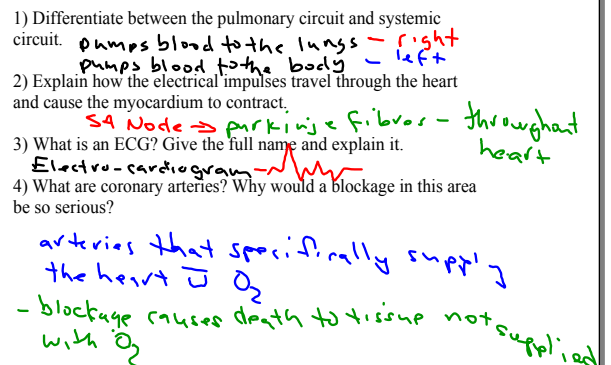 1) Differentiate between the pulmonary circuit and systemic
circuit. pumps blood to the lungs – right
pumps blood to the body – left
2) Explain how the electrical impulses travel through the heart
and cause the myocardium to contract.
SA Node → purkinje fibres – throughout
heart
3) What is an ECG? Give the full name and explain it.
Electro-cardiogram –
4) What are coronary arteries? Why would a blockage in this area
be so serious?
arteries that specifically supply
the heart c̅ O₂
– blockage causes death to tissue not supplied
with O₂